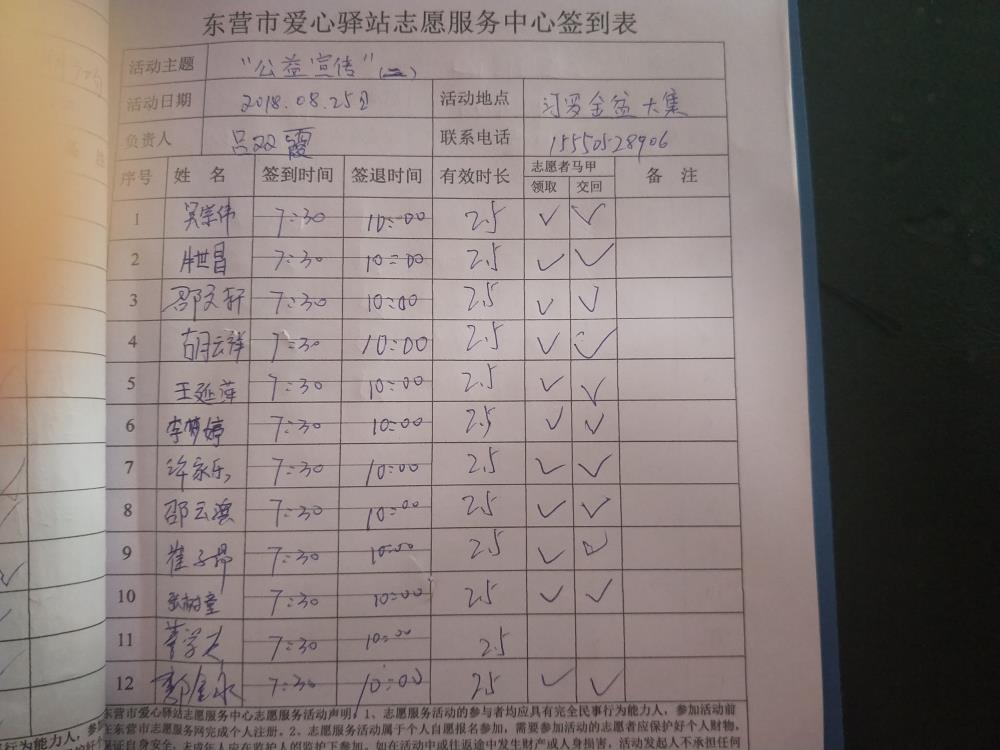 东营市爱心驿站志愿服务中心签到表
活动主题 “公益宣传”(二)
活动日期 2018.08.25日 活动地点 河口金盆大集
负责人 吕双霞 联系电话 15550528906
序号 姓 名 签到时间 签退时间 有效时长 志愿者马甲 领取 交回 备 注
1 吴宗伟 7:30 10:00 2.5 ✓ ✓
2 世昌 7:30 10:00 2.5 ✓ ✓
3 邵文轩 7:30 10:00 2.5 ✓ ✓
4 胡云祥 7:30 10:00 2.5 ✓ ✓
5 王延萍 7:30 10:00 2.5 ✓ ✓
6 李梦婷 7:30 10:00 2.5 ✓ ✓
7 许家乐 7:30 10:00 2.5 ✓ ✓
8 邵云滨 7:30 10:00 2.5 ✓ ✓
9 崔子昂 7:30 10:00 2.5 ✓ ✓
10 张树童 7:30 10:00 2.5 ✓ ✓
11 7:30 10:00 2.5
12 郭金永 7:30 10:00 2.5 ✓ ✓
东营市爱心驿站志愿服务中心志愿服务活动声明：1、志愿服务活动的参与者均应具有完全民事行为能力人，参加活动前
在东营市志愿服务网完成个人注册。2、志愿服务活动属于个人自愿报名参加，需要参加活动的志愿者应保护好个人财物，
保证自身安全，未成年人应在监护人的监护下参加。如在活动中或往返途中发生财产或人身损害，活动发起人不承担任何